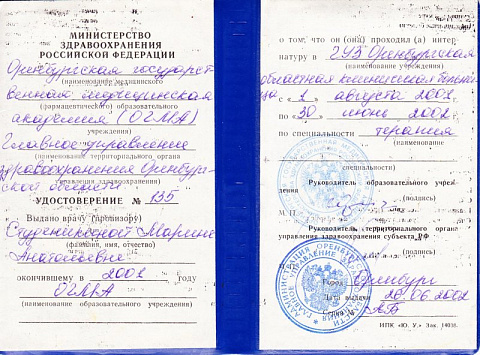 МИНИСТЕРСТВО
ЗДРАВООХРАНЕНИЯ
РОССИЙСКОЙ ФЕДЕРАЦИИ
Оренбургская государст
(наименование медицинского
венная медицинская
(фармацевтического) образовательного
академия (ОГМА)
учреждения)
Главное управление
(наименование территориального органа
здравоохранения Оренбург-
управления здравоохранения)
ской области
УДОСТОВЕРЕНИЕ № 135
Выдано врачу (провизору)
Студеникиной Марине
(фамилия, имя, отчество)
Анатольевне
окончившему в 2001 году
ОГМА
(наименование образовательного учреждения)
о том, что он (она) проходил (а) интер-
натуру в ГУЗ Оренбургская
(наименование учреждения)
областная клиническая больни
ца с 1 августа 2001
по 30 июнь 2002
по специальности терапия
(наименование
специальности)
Руководитель образовательного учреж
дения
(подпись)
М. П.
Руководитель территориального органа
управления здравоохранения субъекта РФ
(подпись)
Город Оренбург
Дата выдачи 20.06.2002
ИПК «Ю. У.» Зак. 14038.